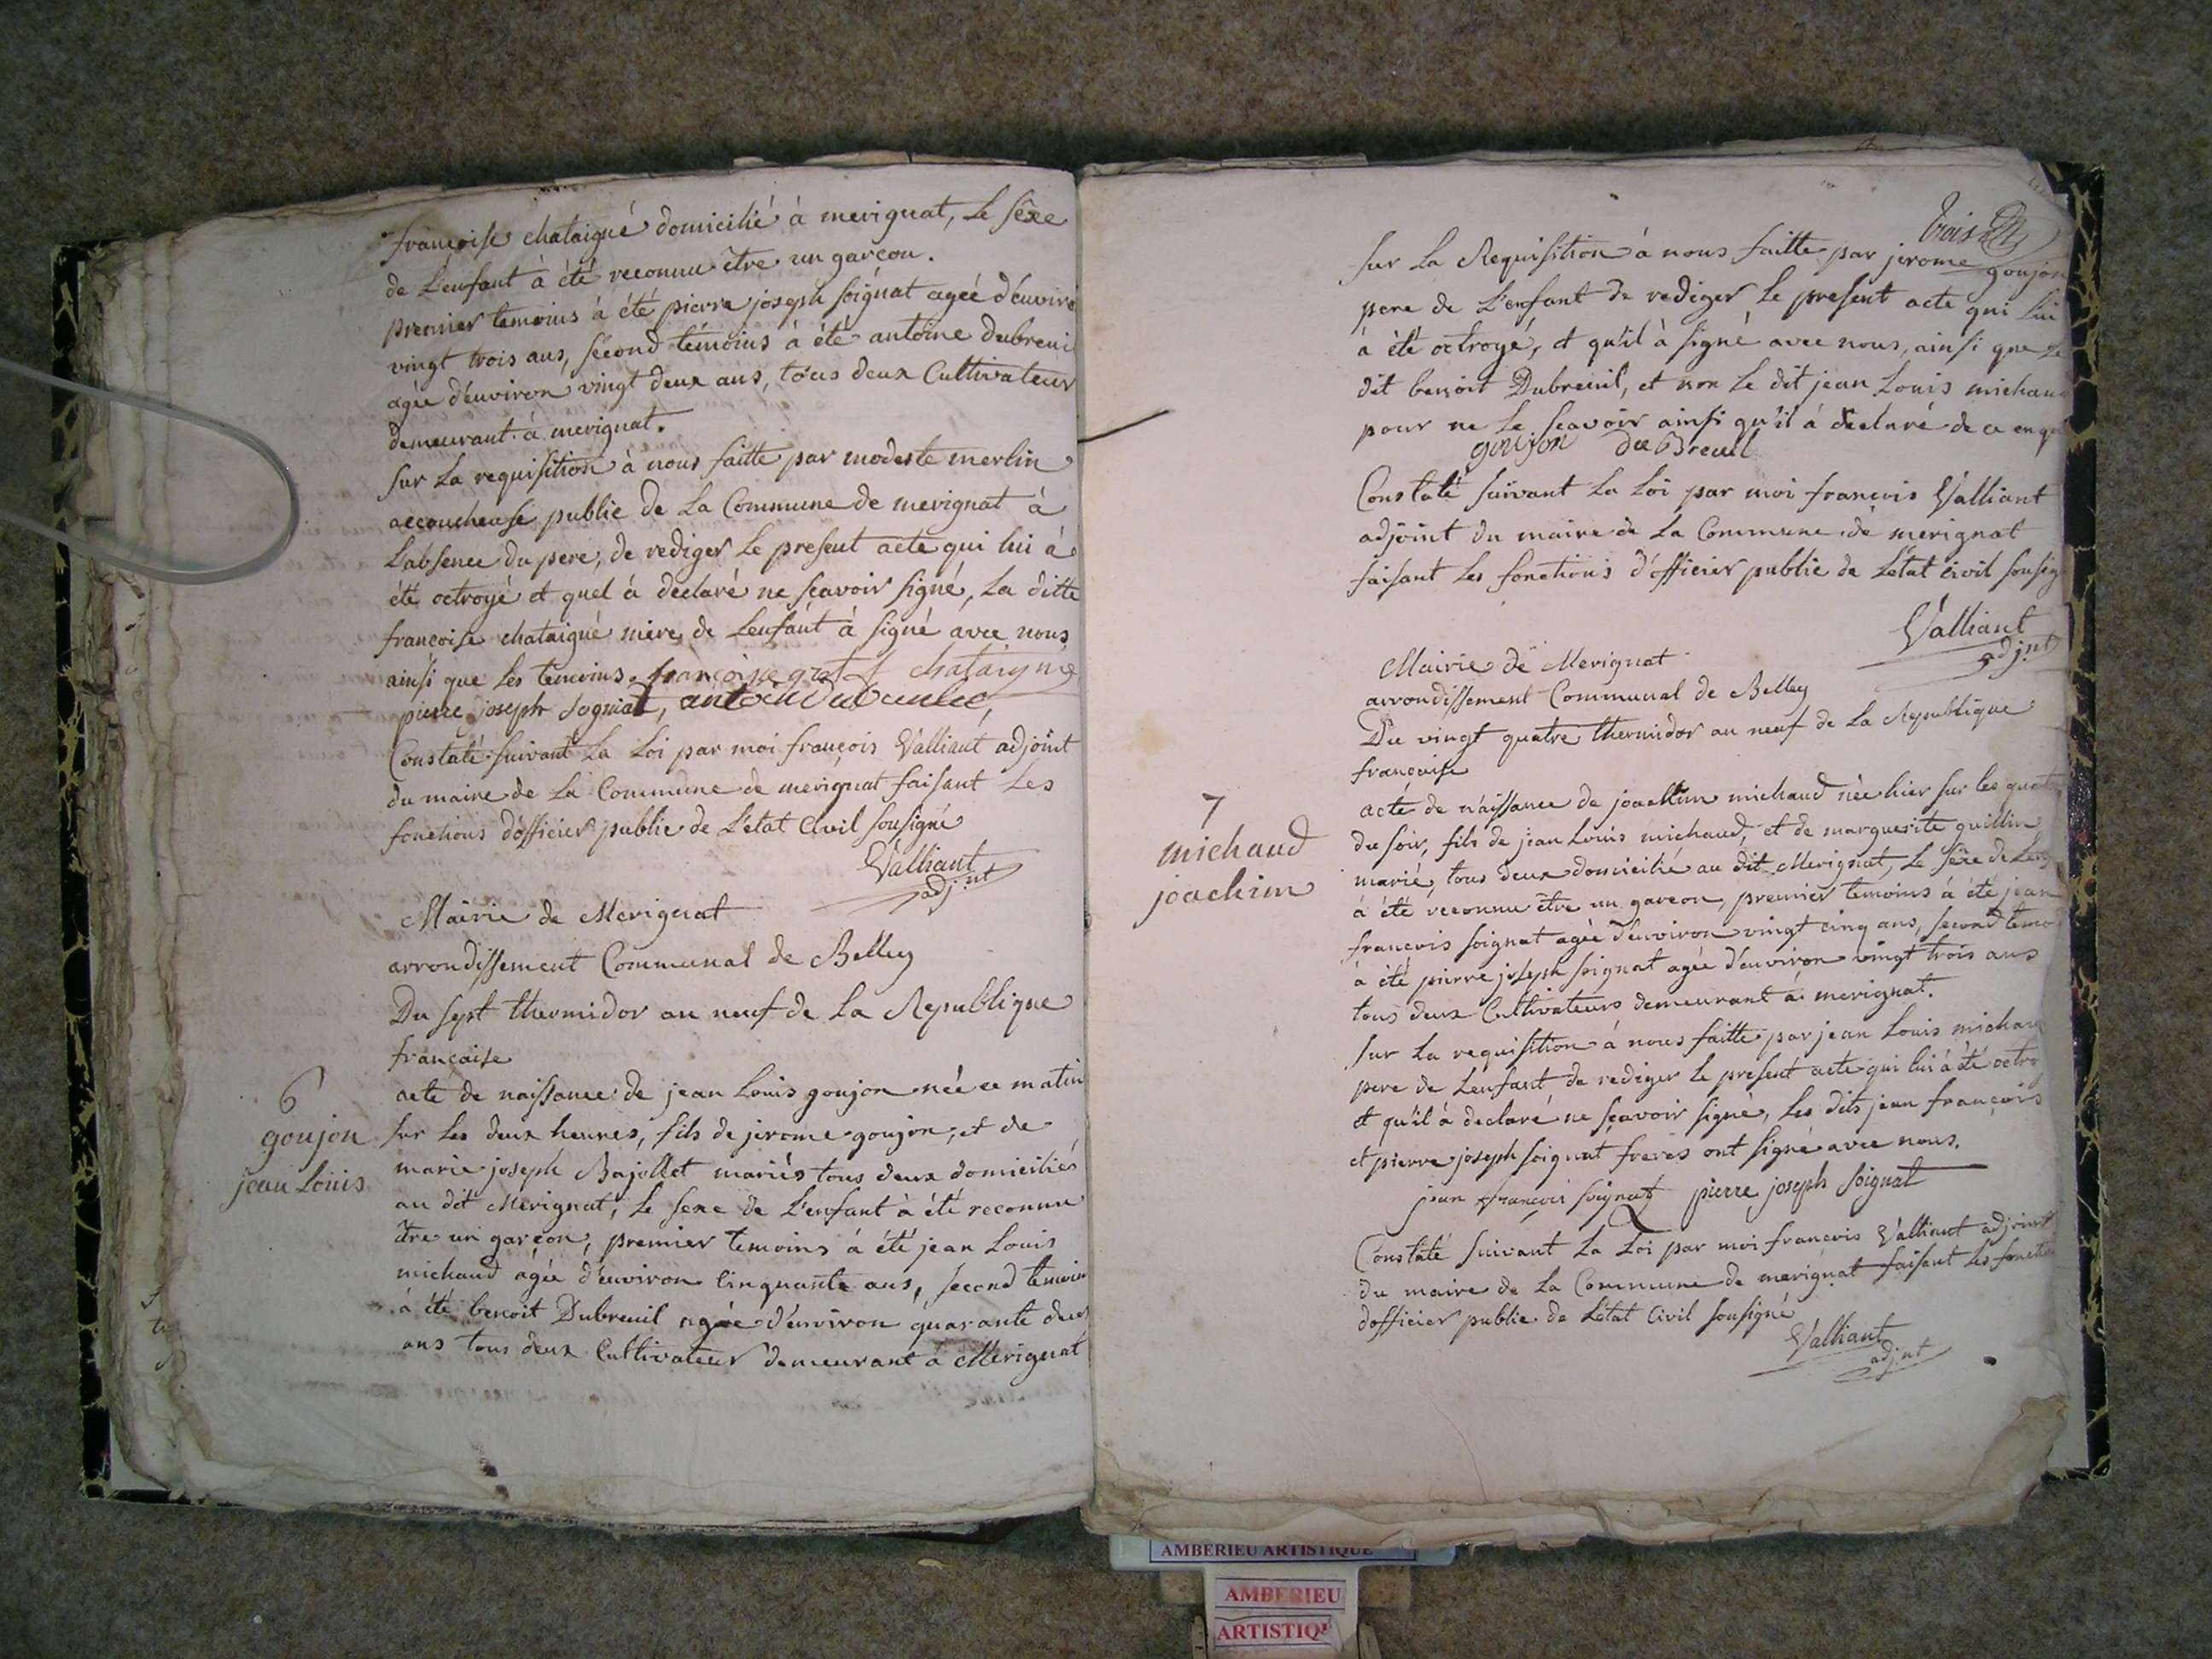 françoise chataigné domicilié à merignat, le sexe
de L'enfant à été reconnu être un garçon.
premier temoins à été pierre joseph soignat ageé d'enviro
vingt trois ans, second témoins à été antoine dubreui
agée d'environ vingt deux ans, tous deux Cultivateur
demeurant à merignat.
sur La requisition à nous faitte par modeste merlin
accoucheuse public de La Commune de merignat à
L'absence du pere, de rediger Le present acte qui lui à
été octroyé et quel à declaré ne scavoir signé, La ditte
francoise chataigné mere de Lenfant à signé avec nous
ainsi que Les temoins. françoise chataigné
pierre joseph Sogniat,
Constaté suivant La Loi par moi françois Valliant adjoint
du maire de La Commune de merignat faisant Les
fonctions d'officier public de L'état Civil sousigné
Valliant
adj.nt
Mairie de Merignat
arrondissement Communal de Belley
Du sept thermidor an neuf de La Republique
française
6
goujon
jean Louis
acte de naissance de jean Louis goujon née ce matin
sur Les deux heures, fils de jerome goujon, et de
marie joseph Bajollet mariés tous deux domiciliés
au dit Merignat, Le sexe de L'enfant à été reconnu
être un garçon, premier temoins à été jean Louis
michaud agée d'environ Cinquante ans, second temoin
à été benoit Dubreuil agée d'environ quarante deux
ans tous deux Cultivateur demeurant à Merignat
trois
sur La Requisition à nous faitte par jerome goujon
pere de L'enfant de rediger Le present acte qui lui
à été octroyé, et qu'il à signé avec nous, ainsi que Le
dit benoit Dubreuil, et non Le dit jean Louis michau
pour ne Le scavoir ainsi qu'il à déclaré de ce enqu
goujon du Breuil
Constaté suivant La Loi par moi françois Valliant
adjoint du maire de La Commune de merignat
faisant Les fonctions d'officier public de L'état civil sousig
Valliant
adj.nt
Mairie de Merignat
arrondissement Communal de Belley
Du vingt quatre thermidor an neuf de La Republique
francaise
7
michaud
joachim
acte de naissance de joachim michaud née hier sur les quat
du soir, fils de jean Louis michaud, et de marguerite guillin
marié, tous deux domicilié au dit Merignat, Le sexe de Len
à été reconnu être un garcon, premier temoins à été jean
francois soignat agée d'environ vingt cinq ans, second temo
à été pierre joseph soignat agée d'environ vingt trois ans
tous deux Cultivateurs demeurant à merignat.
sur La requisition à nous faitte par jean Louis michau
pere de Lenfant de rediger le present acte qui lui à été octro
et qu'il à declaré ne sçavoir signé, Les dits jean françois
et pierre joseph soignat freres ont signé avec nous.
jean françois soignat pierre joseph soignat
Constaté suivant La Loi par moi francois Valliant adjoint
du maire de La Commune de merignat faisant Les foncti
dofficier public de Létat Civil sousigné
Valliant
adj.nt
AMBERIEU ARTISTIQUE
AMBERIEU
ARTISTIQU